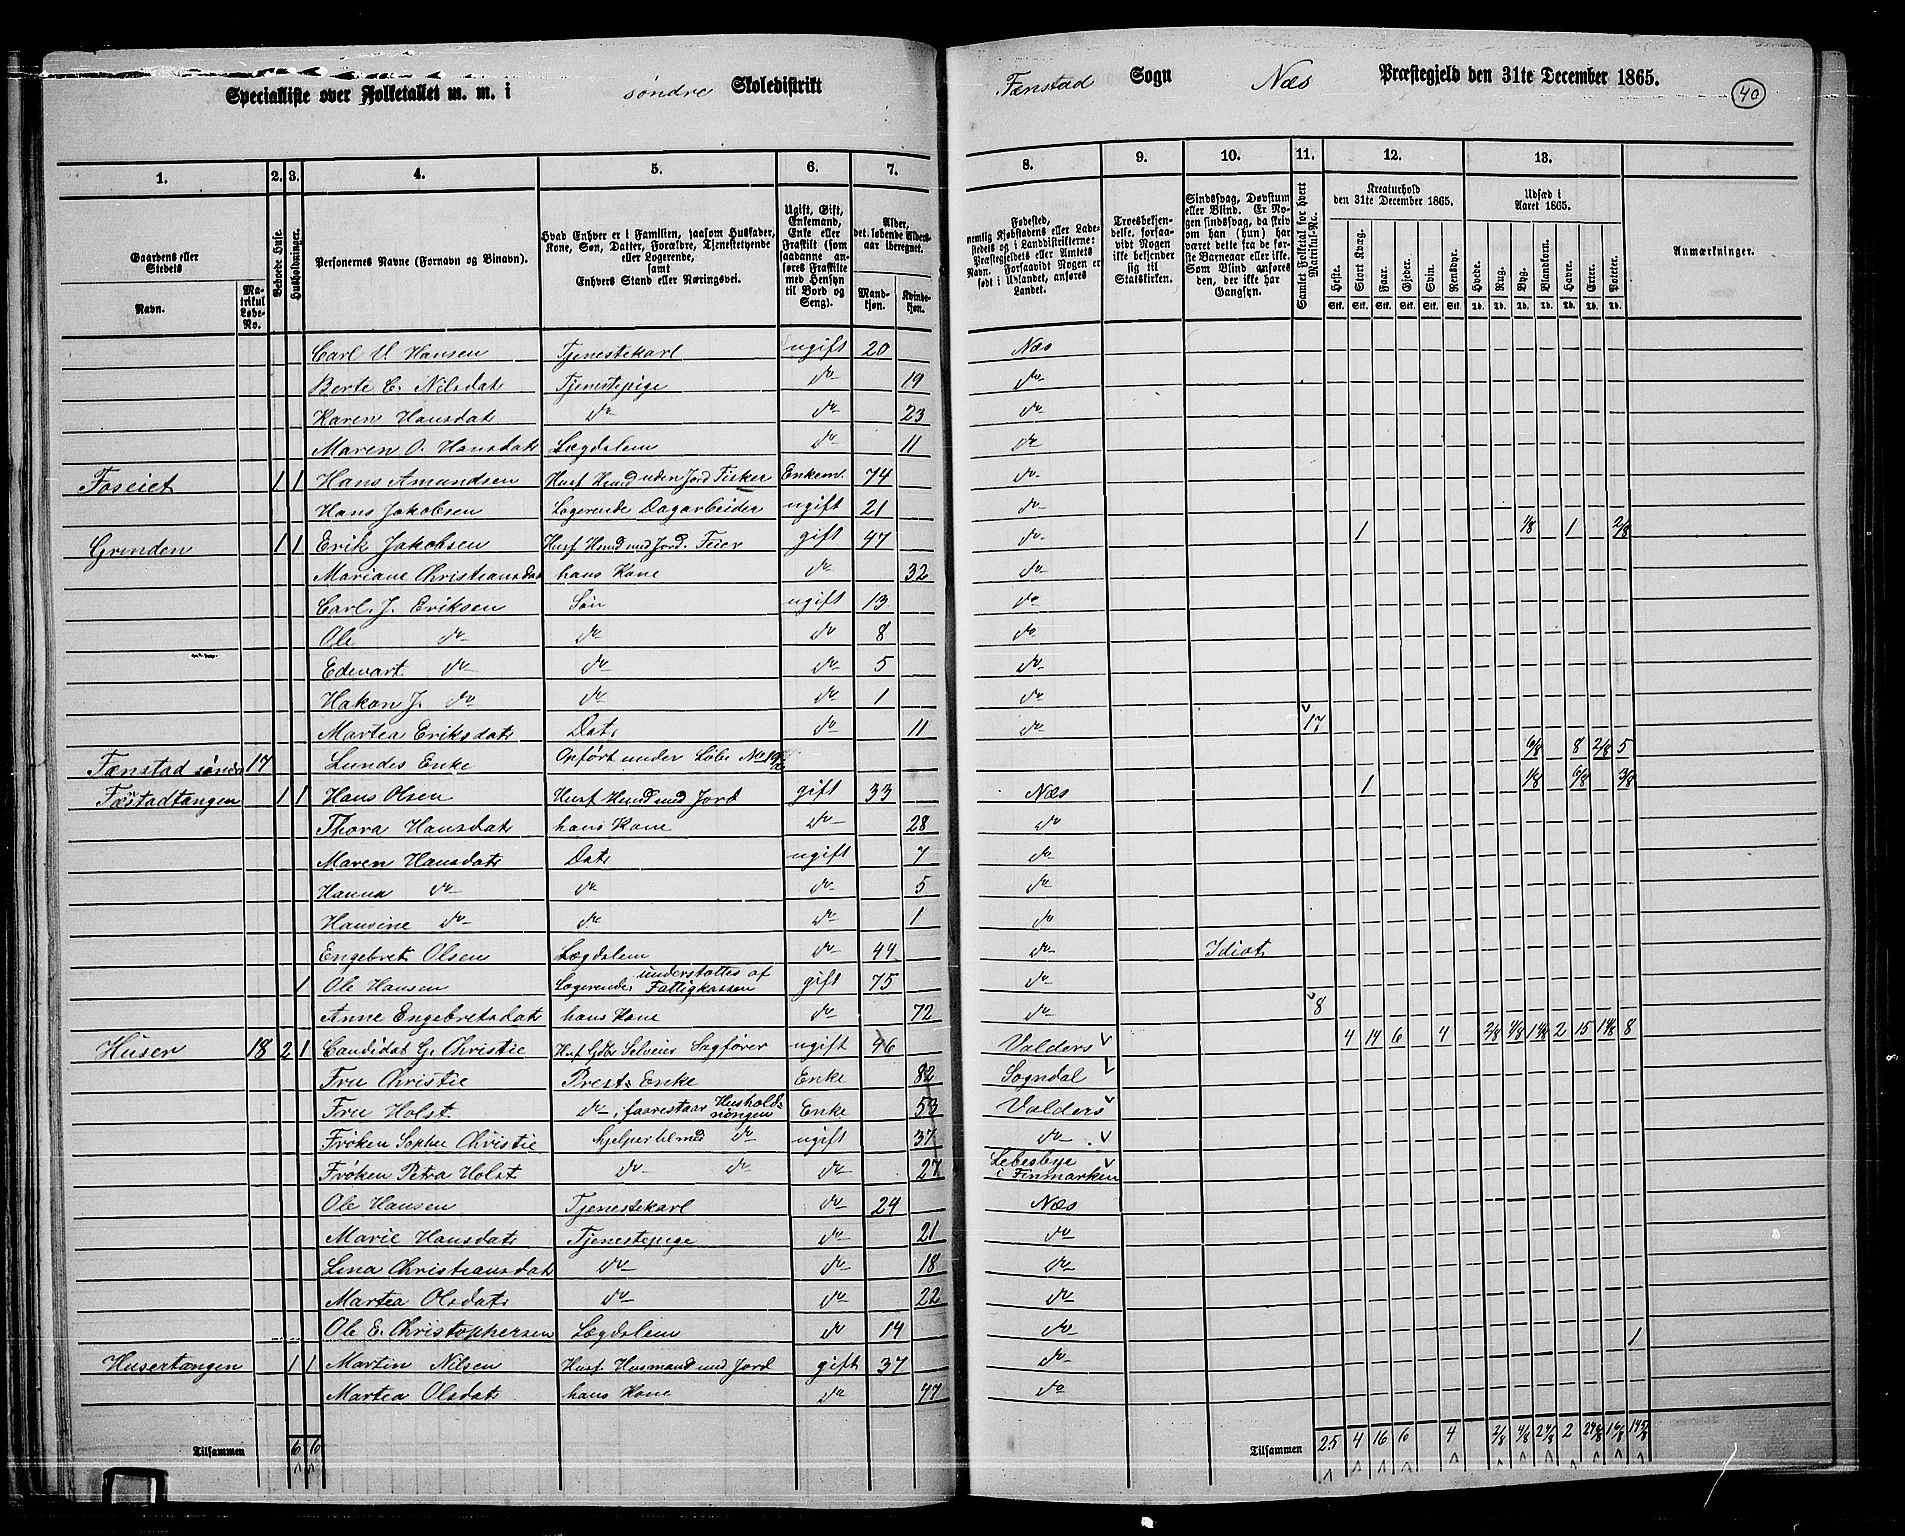 Specialliste over Folketallet m. m. i søndre Skoledistrikt Fænstad Sogn Næs Præstegjeld den 31te December 1865.
40
1. 2. 3. 4. 5. 6. 7. 8. 9. 10. 11. 12. 13.
Gaardens eller Stedets
Navn.
Matrikul Løbe-No.
Beboede Huse.
Husholdninger.
Personernes Navne (Fornavn og Binavn).
Hvad Enhver er i Familien, saasom Husfader, Kone, Søn, Datter, Forældre, Tjenestetyende eller Logerende, samt Enhvers Stand eller Næringsvei.
Ugift, Gift, Enkemand, Enke eller Fraskilt (som saadanne anføres Fraskilte med Hensyn til Bord og Seng).
Alder, det løbende Aldersaar iberegnet.
Mandkjøn.
Kvindekjøn.
Fødested, nemlig Kjøbstadens eller Ladestedets og i Landdistrikterne: Præstegjeldets eller Amtets Navn. Forsaavidt Nogen er født i Udlandet, anføres Landet.
Troesbekjendelse, forsaavidt Nogen ikke bekjender sig til Statskirken.
Sindssvag, Døvstum eller Blind. Er Nogen sindssvag, da skrives om han (hun) har været dette fra de første Barneaar eller ikke. Som Blind anføres den, der ikke har Gangsyn.
Samlet Folketal for hvert Matrikul-Nr.
Kreaturhold den 31te December 1865.
Heste. Stort Kvæg. Faar. Gjeder. Svin. Rensdyr.
Udsæd i Aaret 1865.
Hvede. Rug. Byg. Blandkorn. Havre. Erter. Poteter.
Anmærkninger.
Carl U Hansen Tjenestekarl ugift 20 Næs
Berte C. Nilsdat Tjenestepige do 19 do
Karen Hansdat do do 23 do
Maren O. Hansdat Lægdslem do 11 do
Foseiet 1 1 Hans Amundsen Husf Hmd uden Jord Fisker Enkem. 74 do
Hans Jakobsen Logerende Dagarbeider ugift 21 do
Grinden 1 1 Erik Jakobsen Husf Hmd med Jord. Feier gift 47 do 1 1/8 1 2/8
Mariane Christiansdat hans Kone do 32 do
Carl. J. Eriksen Søn ugift 13 do
Ole do do do 8 do
Edevart do do do 5 do
Hakon J. do do do 1 do
Martea Eriksdat Dat do 11 do 17
Fænstad søndre 17 Lundes Enke Opført under Løbe No 6/8 8 2/8 5
Fænstadtangen 1 1 Hans Olsen Husf Hmd med Jord gift 33 Næs 1 1/8 6/8 3/8
Thora Hansdat hans Kone do 28 do
Maren Hansdat Dat ugift 7 do
Hanna do do do 5 do
Hansine do do do 1 do
Engebret Olsen Lægdslem do 44 do Idiot
1 Ole Hansen Logerende understøttes af Fattigkassen gift 75 do
Anne Engebretsdat hans Kone do 72 do 8
Huser 18 2 1 Candidat G. Christie Husf Gbr Selveier Sagfører ugift 46 Valders 4 14 6 4 2/8 4/8 1 4/8 2 15 1 4/8 8
Fru Christie Prest: Enke Enke 82 Sogndal
Fru Holst do, foorestaar Husholdningen Enke 53 Valders
Frøken Sophie Christie hjelper til med do ugift 37 do
Frøken Petra Holst do do do 27 Lebesbye i Finmarken
Ole Hansen Tjenestekarl do 24 Næs
Marie Hansdat Tjenestepige do 21 do
Lina Christiansdat do do 18 do
Martea Olsdat do do 22 do
Ole E. Christophersen Lægdslem do 14 do
Husertangen 1 1 Martin Nilsen Husf Husmand med Jord gift 37 do 1
Martea Olsdat hans Kone do 47 do
Tilsammen 6 6 Tilsammen 25 4 16 6 4 2/8 4/8 2 4/8 2